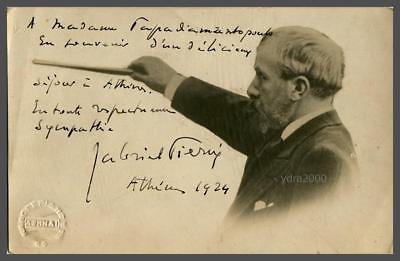 A Madame Papadiamantopoulo
En souvenir d'un délicieux
séjour à Athènes.
En toute respectueuse
Sympathie
Gabriel Pierné
Athènes 1924
ydra2000